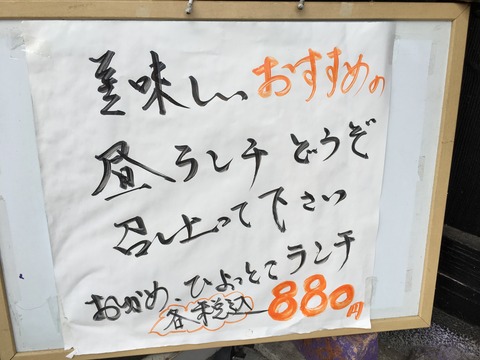 美味しいおすすめの
昼ランチどうぞ
召し上って下さい
おかめ、ひょっとこランチ
各税込880円